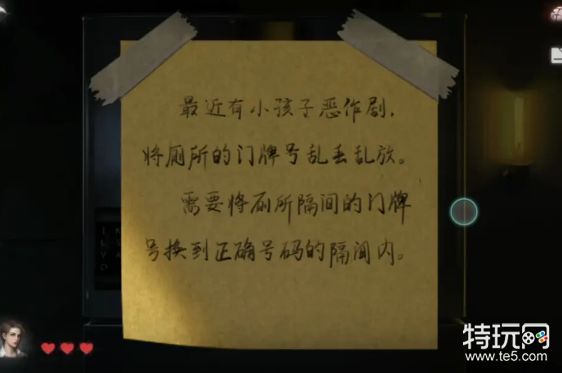 最近有小孩子恶作剧，
将厕所的门牌号乱丢乱放。
需要将厕所隔间的门牌
号换到正确号码的隔间内。
特玩网
www.te5.com